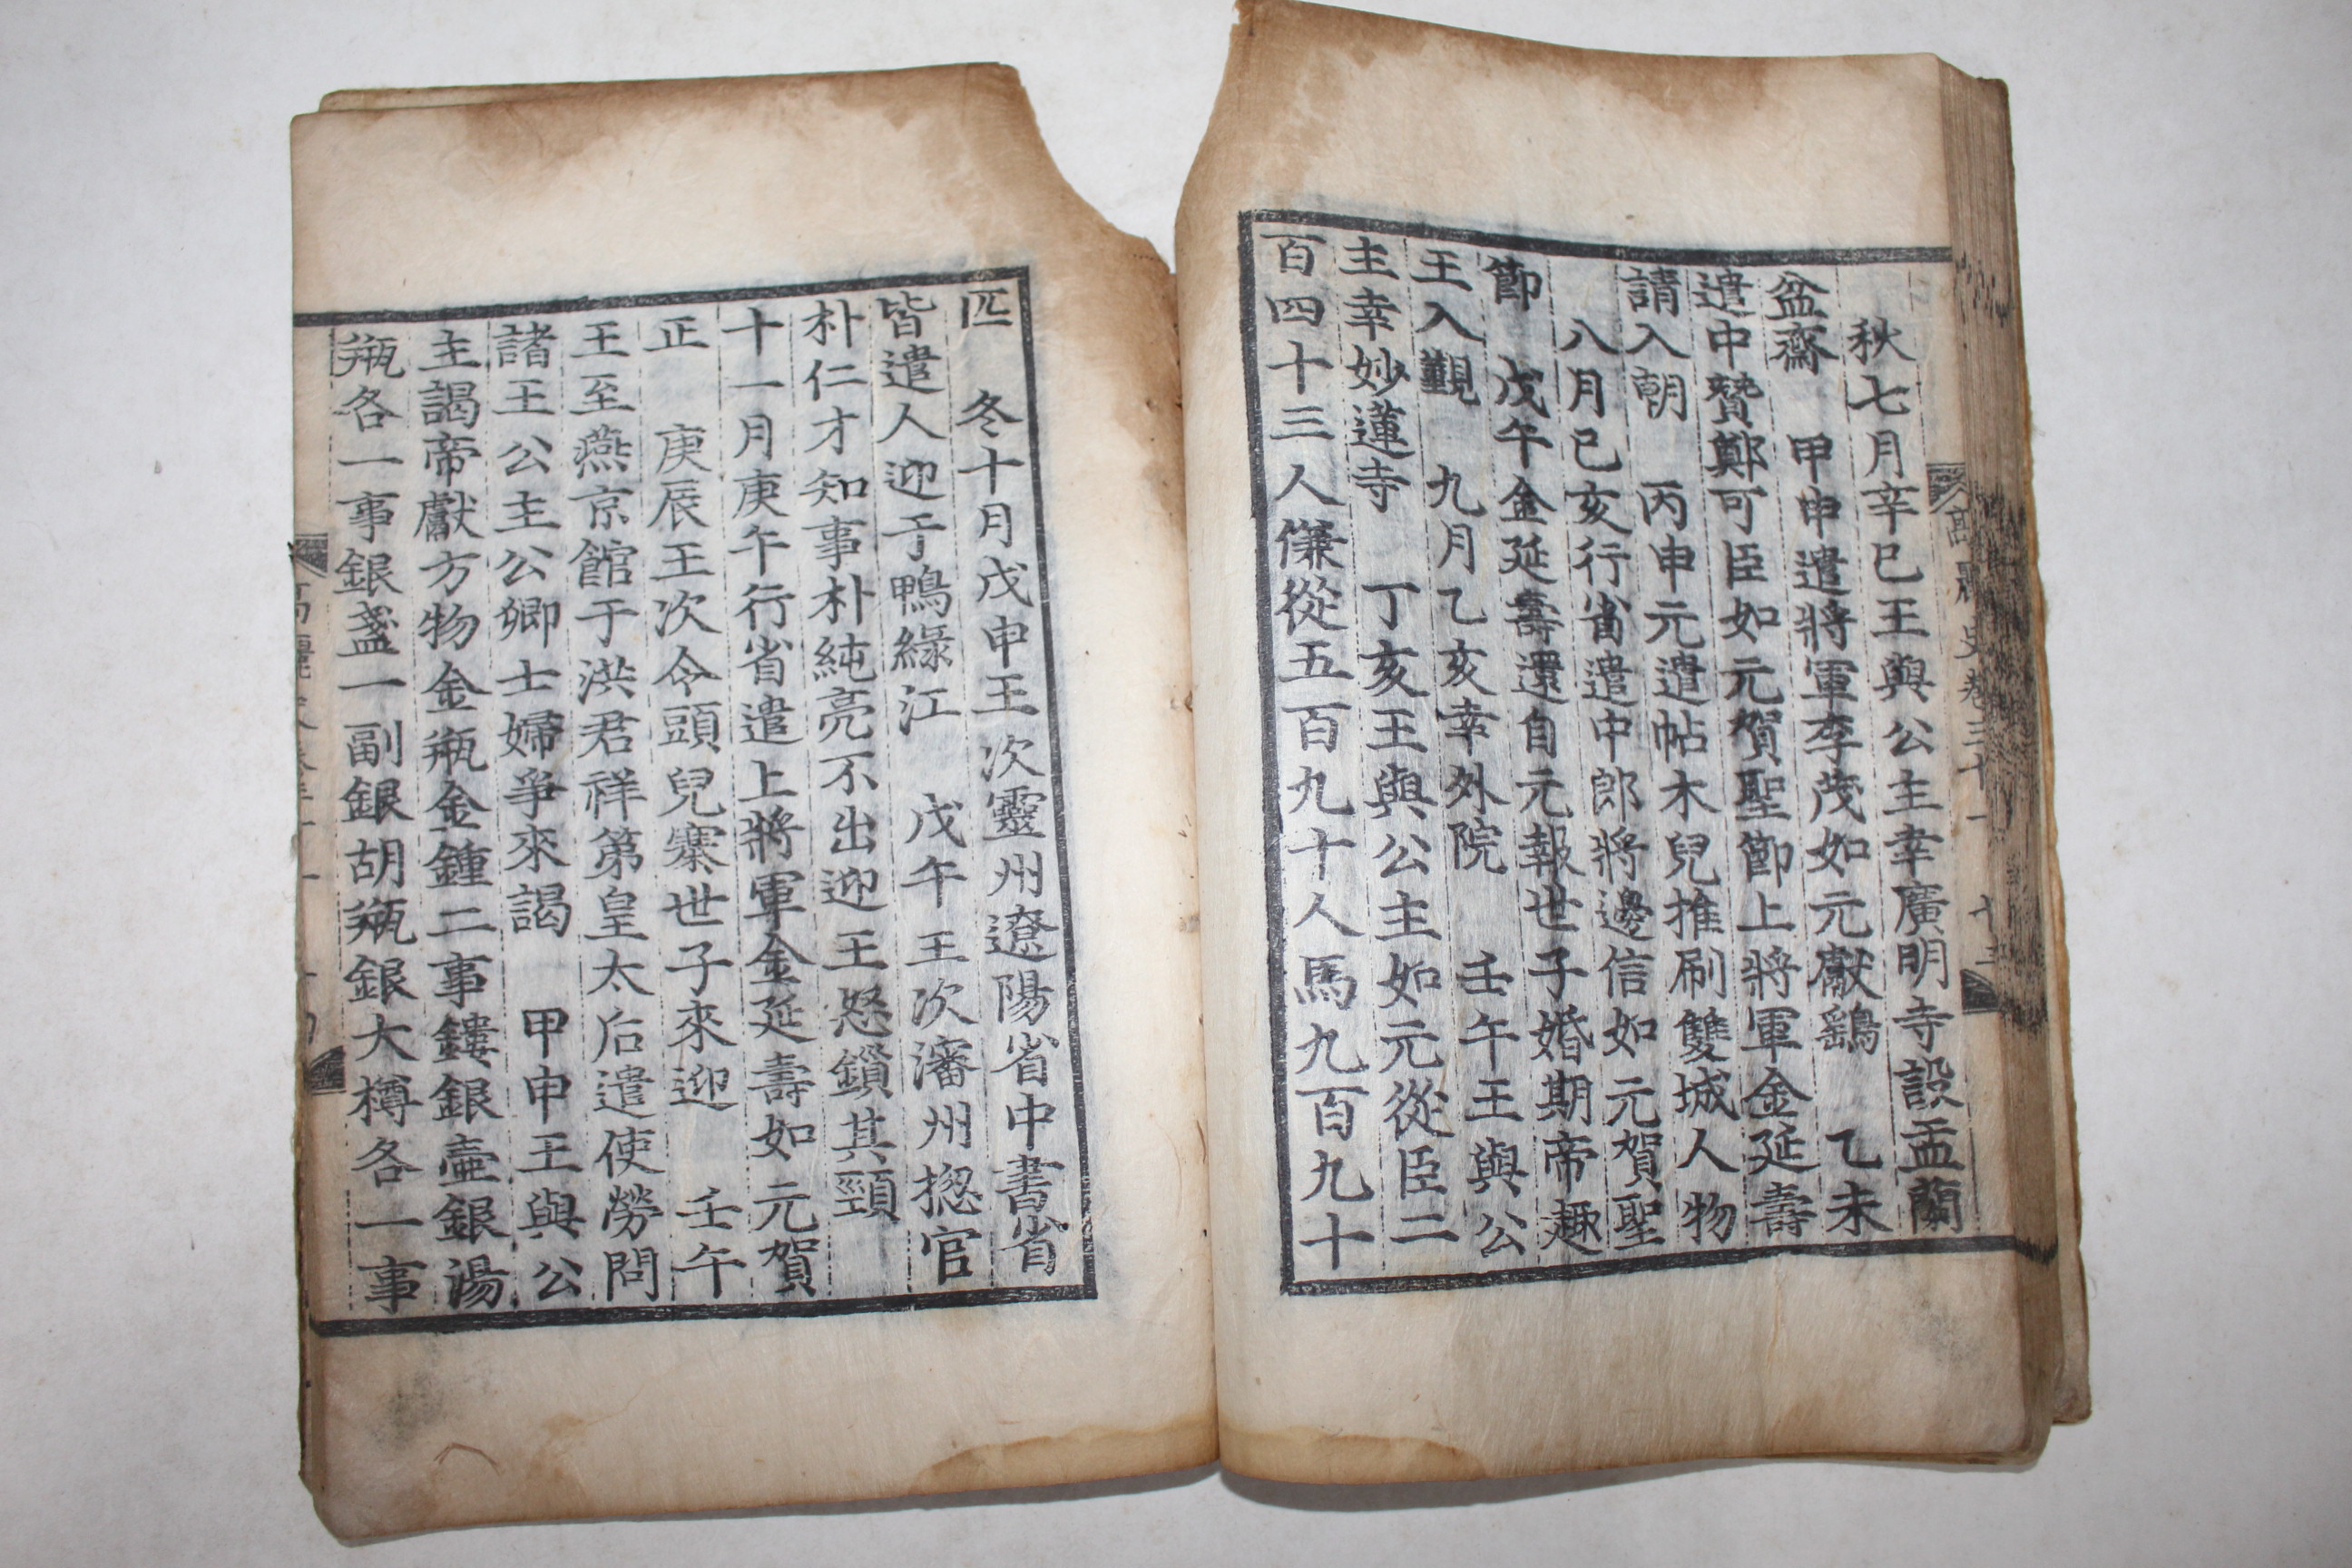 秋七月辛巳王與公主幸廣明寺設盂蘭
盆齋 甲申遣將軍李茂如元獻鷂 乙未
遣中贊鄭可臣如元賀聖節上將軍金延壽
請入朝 丙申元遣帖木兒推刷雙城人物
八月己亥行省遣中郎將邊信如元賀聖
節 戊午金延壽還自元報世子婚期帝趣
王入覲 九月乙亥幸外院 壬午王與公
主幸妙蓮寺 丁亥王與公主如元從臣二
百四十三人傔從五百九十人馬九百九十
高麗史卷三十一 十三
匹 冬十月戊申王次靈州遼陽省中書省
皆遣人迎于鴨綠江 戊午王次瀋州摠官
朴仁才知事朴純亮不出迎王怒鎖其頸
十一月庚午行省遣上將軍金延壽如元賀
正 庚辰王次令頭兒寨世子來迎 壬午
王至燕京館于洪君祥第皇太后遣使勞問
諸王公主公卿士婦爭來謁 甲申王與公
主謁帝獻方物金瓶金鍾二事鏤銀壷銀湯
瓶各一事銀盞一副銀胡瓶銀大樽各一事